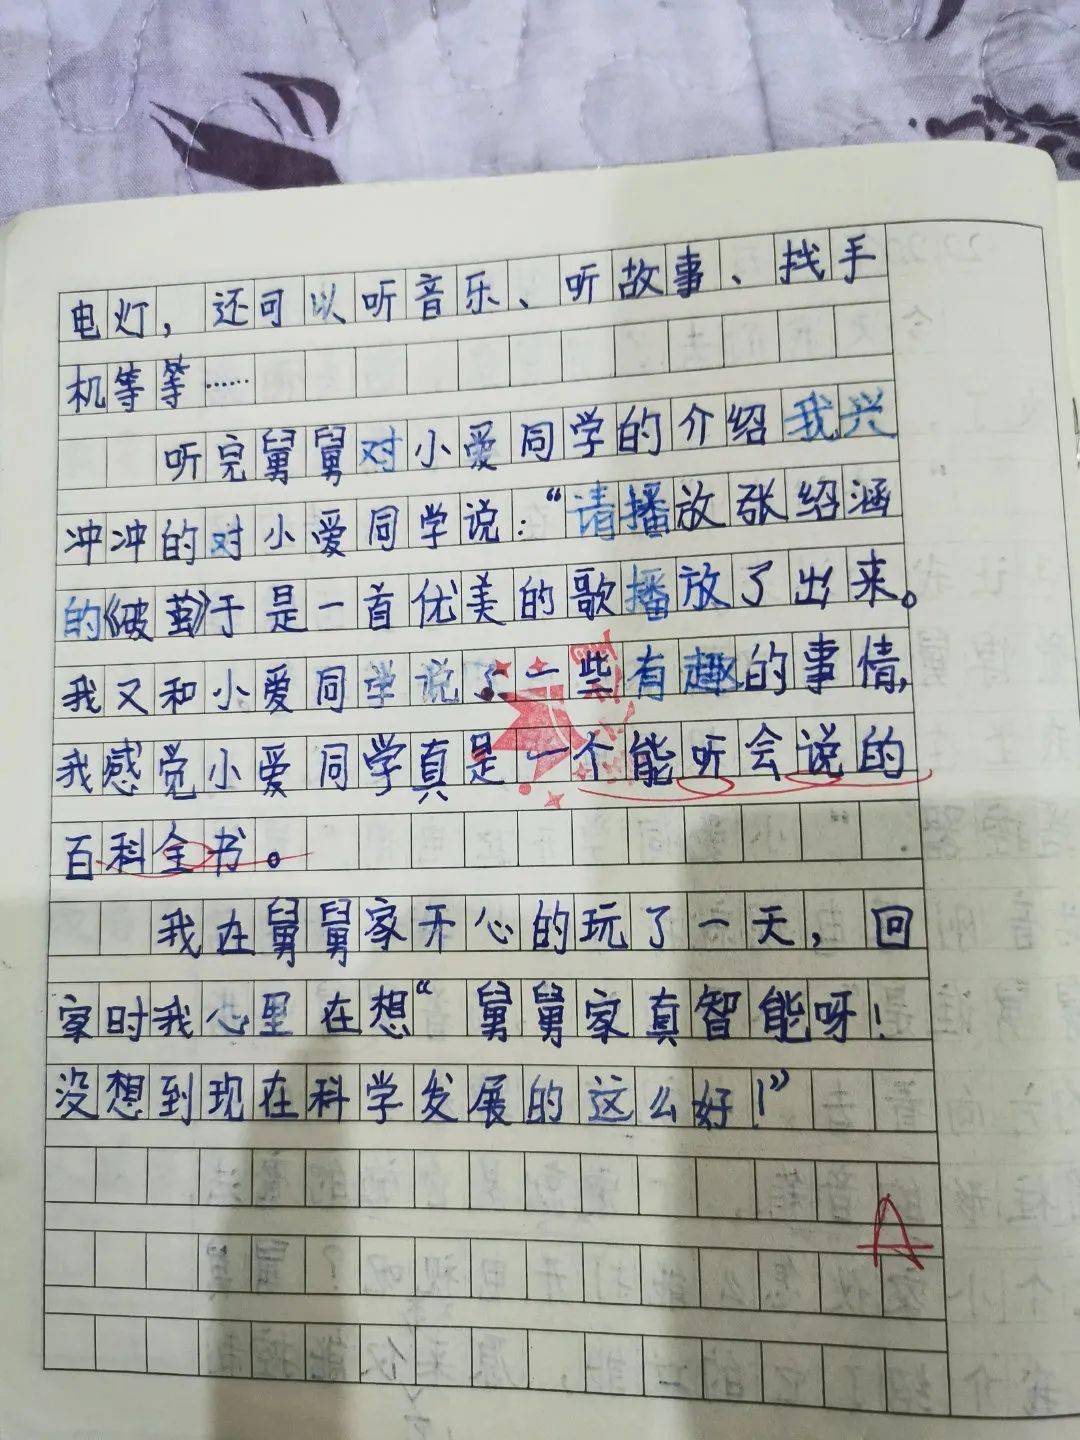 电灯，还可以听音乐、听故事、找手
机等等……
听完舅舅对小爱同学的介绍我兴
冲冲的对小爱同学说：“请播放张绍涵
的《破茧》于是一首优美的歌播放了出来。
我又和小爱同学说了一些有趣的事情，
我感觉小爱同学真是一个能听会说的
百科全书。
我在舅舅家开心的玩了一天，回
家时我心里在想“舅舅家真智能呀！
没想到现在科学发展的这么好！”
A